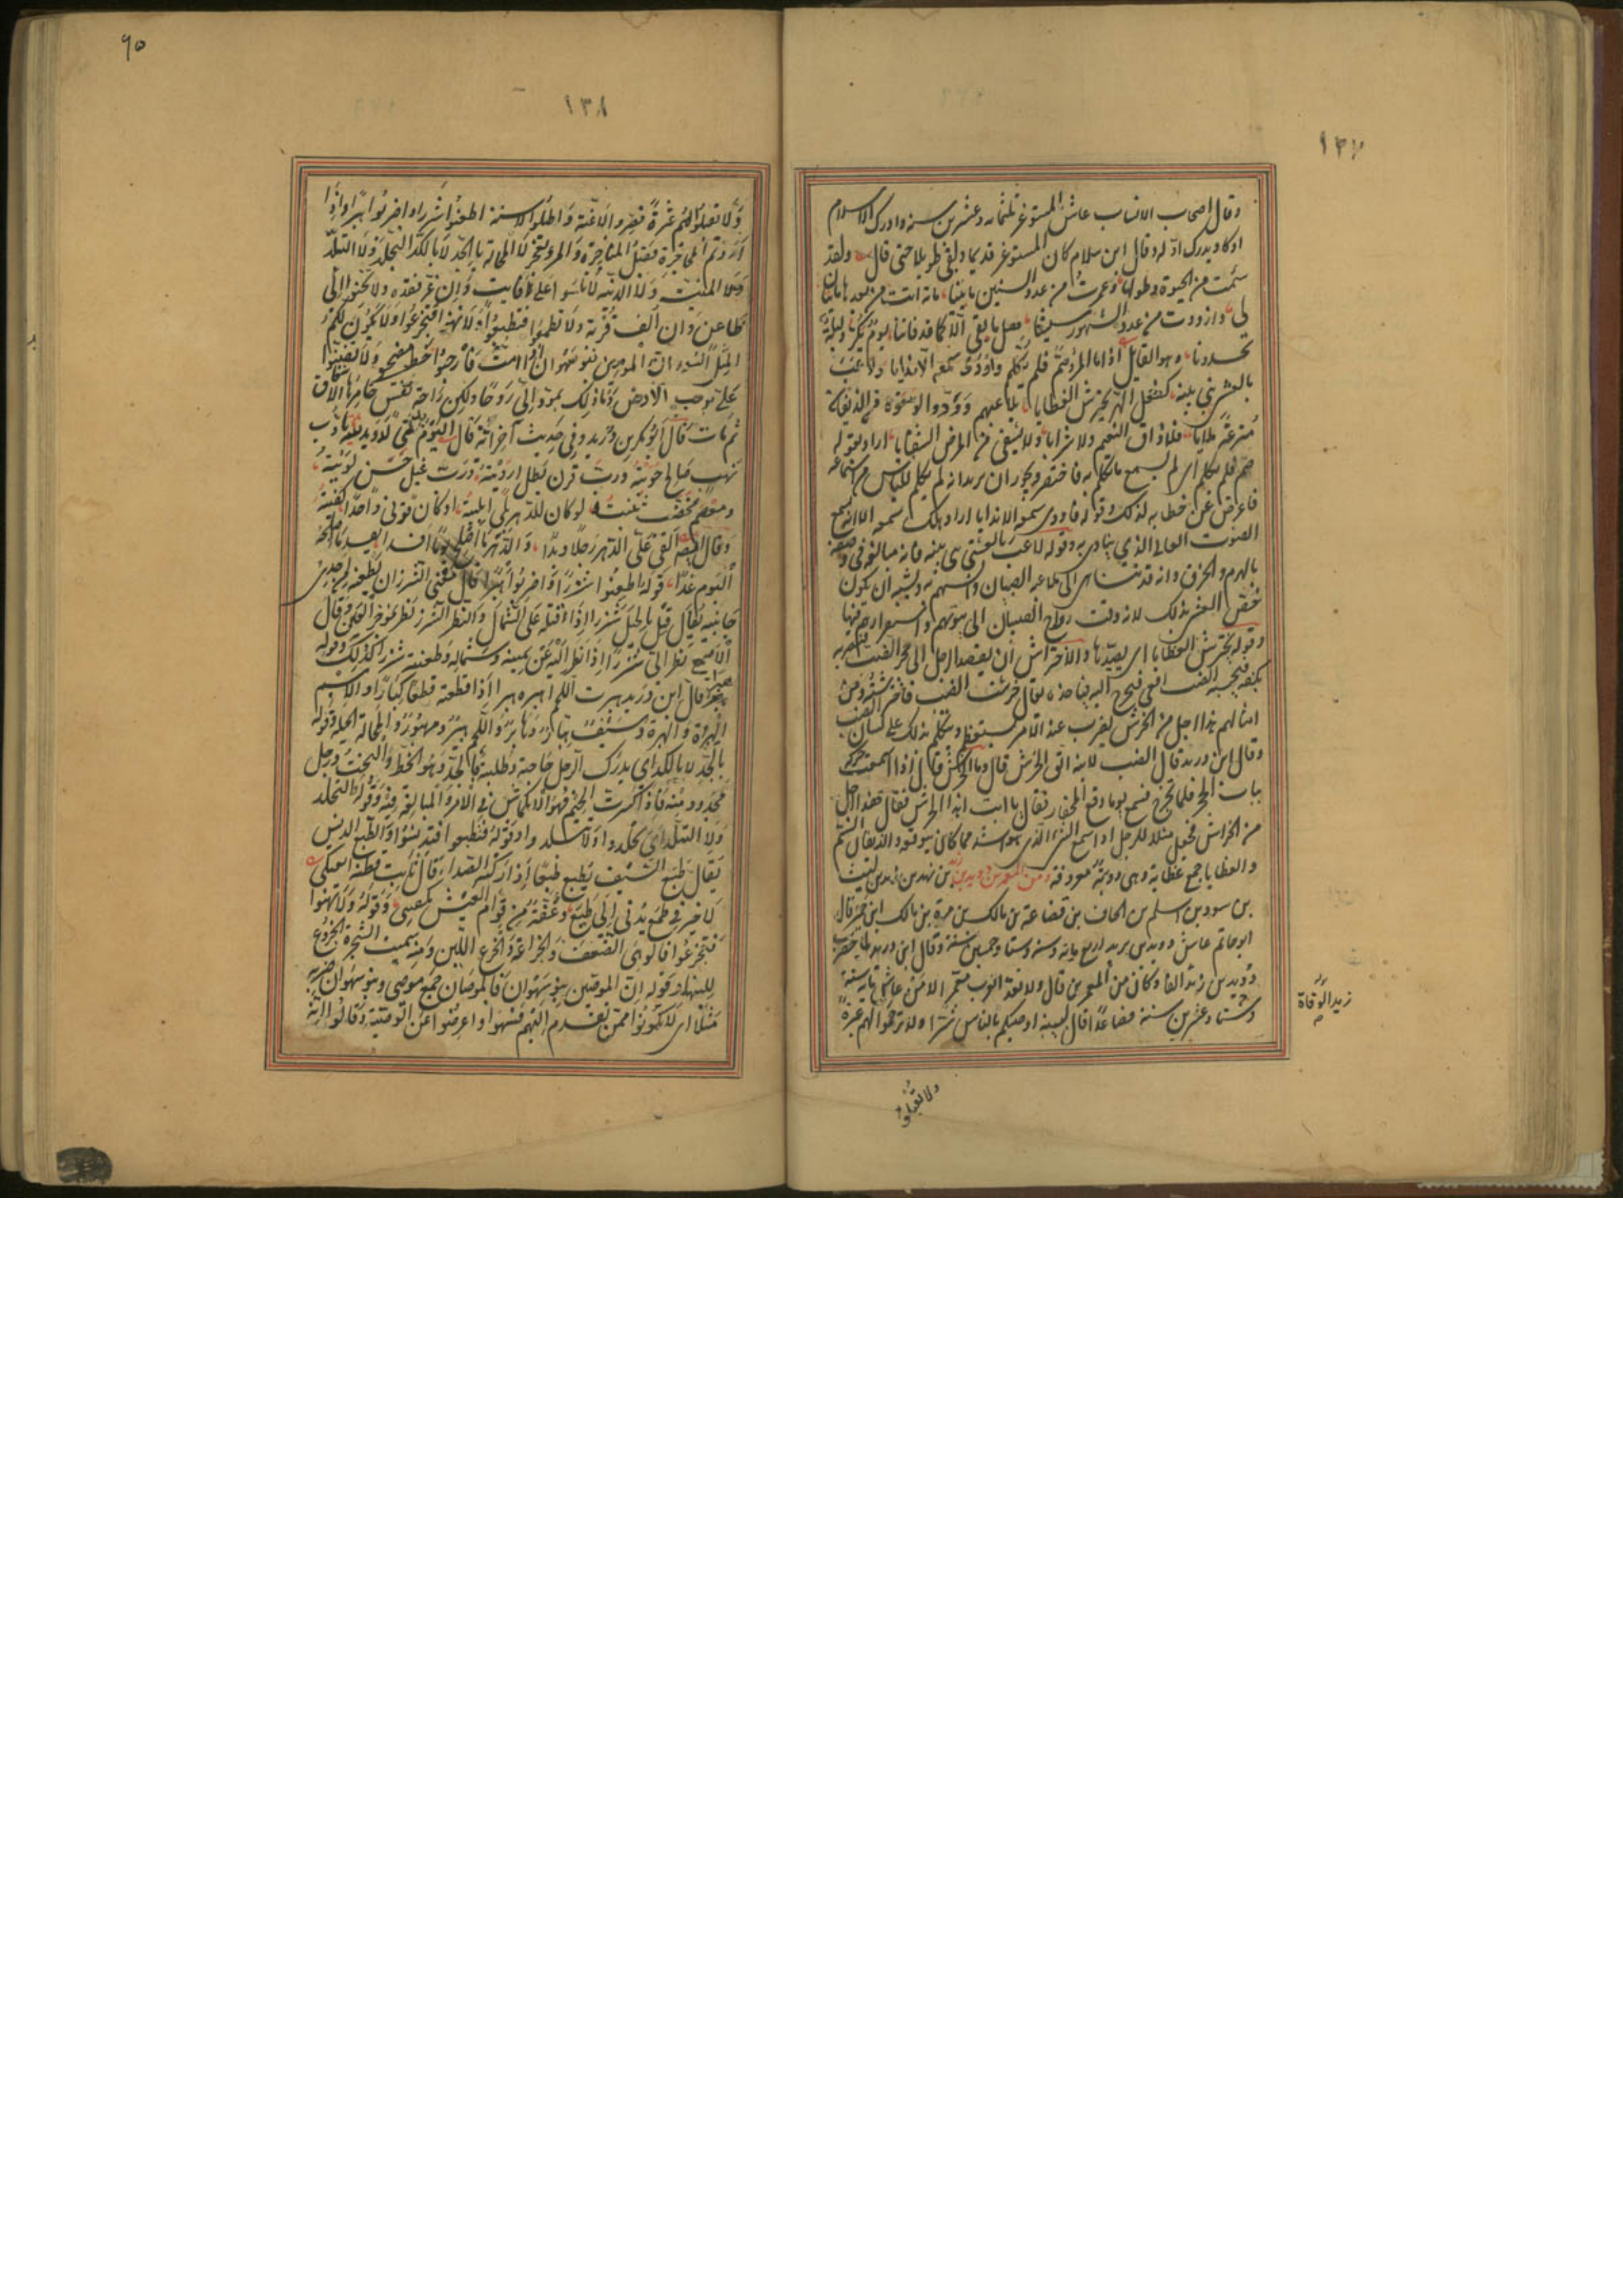 ١٣٧
وقال اصحاب الانساب عاش المستوغر ثلثمائه وعشرين سنه وادرك الاسلام
اوكاد يدرك اوله وقال ابن سلام كان المستوغر قديما وبقى بقا طويلا حتى قال ولقد
سئمت من الحيوة وطولها وعمرت من عدد السنين مائينا مائة اتت من بعدها مائتان
لى وازددت من عدد الشهور سنينا هل ما بقى الا كما قد فاتنا يوم يكر وليلة
تحدونا وهو القائل اذا ما المرء صم فلم يكلم واودى سمعه الا ندايا ولاعب
بالعشى بنى بنيه كفعل الهر يحترش العظايا يلاعبهم وودوا لو سقوه من الذيفان
مترعة ملايا فلا ذاق النعيم ولا شرابا ولا يشفى من المرض الشفايا اراد بقوله
صم فلم يكلم اى لم يسمع ما يكلم به فاختصر ويجوز ان يريد انه لم يكلم لليأس من استماعه
فاعرض عن خطابه لذلك وقوله فاودى سمعه الا ندايا اراد هلك سمعه الا انه يسمع
الصوت العالى الذي ينادى به وقوله لاعب بالعشى بنى بنيه فانه مبالغه فى وصفه
بالهرم والخرف وانه قد تناهى الى ملاعبه الصبيان وانسهم به ويشبه ان يكون
خص العشى بذلك لانه وقت رواح الصبيان الى بيوتهم واستقرارهم فيها
وقوله يحترش العظايا اى يصيدها والاحتراش ان يقصد الرجل الى جحر الضب فيضربه
بكفه فيحسبه الضب افعى فيخرج اليه فياخذه يقال حرشت الضب واحترشته ومن
امثالهم هذا اجل من الحرش يضرب عند الامر يستعظم ويتكلم بذلك على لسان الضب
وقال ابن دريد قال الضب لابنه اتق الحرش قال وما الحرش قال اذا سمعت حركه
بباب الجحر فلا تخرج فسمع يوما وقع المحفار فقال يا ابت اهذا الحرش فقال هذا اجل
من الحرش فجعل مثلا للرجل اذا سمع الشى الذى هو اشد مما كان يتوقعه والذيفان السم
والعظايا جمع عظاية وهى دويبة معروفة ومن المعمرين دويد بن زيد بن نهد بن زيد بن ليث
بن سود بن اسلم بن الحاف بن قضاعة بن مالك بن مرة بن مالك ابن حمير قال
ابو حاتم عاش دويد بن زيد اربع مائه سنه وستا وخمسين سنة وقال ابن دريد لما حضرت
دويد بن زيد الوفاة وكان من المعمرين قال ولا تعد العرب معمرا الا من عاش مائة سنة
وستا وعشرين سنة فصاعدا قال لبنيه اوصيكم بالناس شرا ولا ترحموا لهم عبرة
زيد الوفاة
ولا تقيلو
٩٥
١٣٨
ولا تقيلوا لهم عثرة قصروا الاعنة وطولوا الاسنة اطعنوا شزرا واضربوا هبرا واذا
اردتم المحاجزة فقبل المناجزة والمرء يعجز لا المحالة بالجد لا بالكد التجلد ولا التبلد
والمنية ولا الدنية لا تأسوا على فايت وان عز فقده ولا تحنوا الى
ظاعن وان الف قربه ولا تطمعوا فتطبعوا ولا تهنوا فتجزعوا ولا يكونن لكم
المثل السوء ان الموصين بنو سهوان اذا مت فارحبوا خط مضجعى ولا تضنوا
على برحب الارض وما ذلك بمود الى روحا ولكن راحة نفس خامرها الاشفاق
ثم مات قال ابو بكر بن دريد وفى حديث آخر انه قال اليوم يبنى لدويد بيته يا رب
نهب صالح حويته ورب قرن بطل ارديته ورب غيل حسن لويته
ومعصم مخضب ثنيته لو كان للدهر بلى ابليته او كان قرنى واحدا كفيته
وقال ايضا القى على الدهر رجلا ويدا والدهر ما اصلح يوما افسدا يفسد ما اصلحه
اليوم غدا قوله اطعنوا شزرا واضربوا هبرا قال معنى الشزر ان يطعنه من احدى
جانبيه يقال فتل الحبل شزرا اذا فتله على الشمال والنظر الشزر نظر بمؤخر العين وقال
الاصمعى نظر الى شزرا اذا نظر اليه عن يمينه وشماله وطعنه شزرا كذلك وقوله
هبرا قال ابن دريد هبرت اللحم اهبره هبرا اذا قطعته قطعا كبارا والاسم
الهبرة والهبرة وسيف هبار وهابر واللحم هبير ومهبور والمحالة الحيلة وقوله
بالجد لا بالكد اى يدرك الرجل حاجته وطلبته بالجد وهو الحظ والبخت ورجل
مجدود منه فاذا كسرت الجيم فهو الانكماش فى الامر والمبالغة فيه وقوله التجلد
ولا التبلد اى تجلدوا ولا تتبلدوا وقوله فتطبعوا اى تدنسوا والطبع الدنس
يقال طبع السيف يطبع طبعا اذا ركبه الصدا قال ثابت قطنة العتكى
لا خير فى طمع يدنى الى طبع وغفة من قوام العيش تكفينى وقوله ولا تهنوا
فتجزعوا فالوهن الضعف والخرع والخراعة اللين ومنه سميت الشجرة الخروع
للينها وقوله ان الموصين بنو سهوان فالموصون جمع موصى وبنو سهوان ضربه
مثلا اى لا تكونوا ممن تقدم اليهم فسهوا واعرضوا عن الوصية وقالوا انه